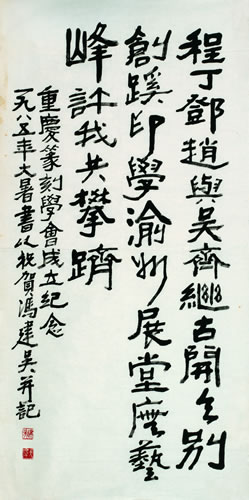 程丁鄧趙與吳齊繼古開今別
創蹊印學渝州展堂廡藝
峰許我共攀躋
重慶篆刻學會成立紀念
一九八五年大暑書以祝賀馮建吳并記